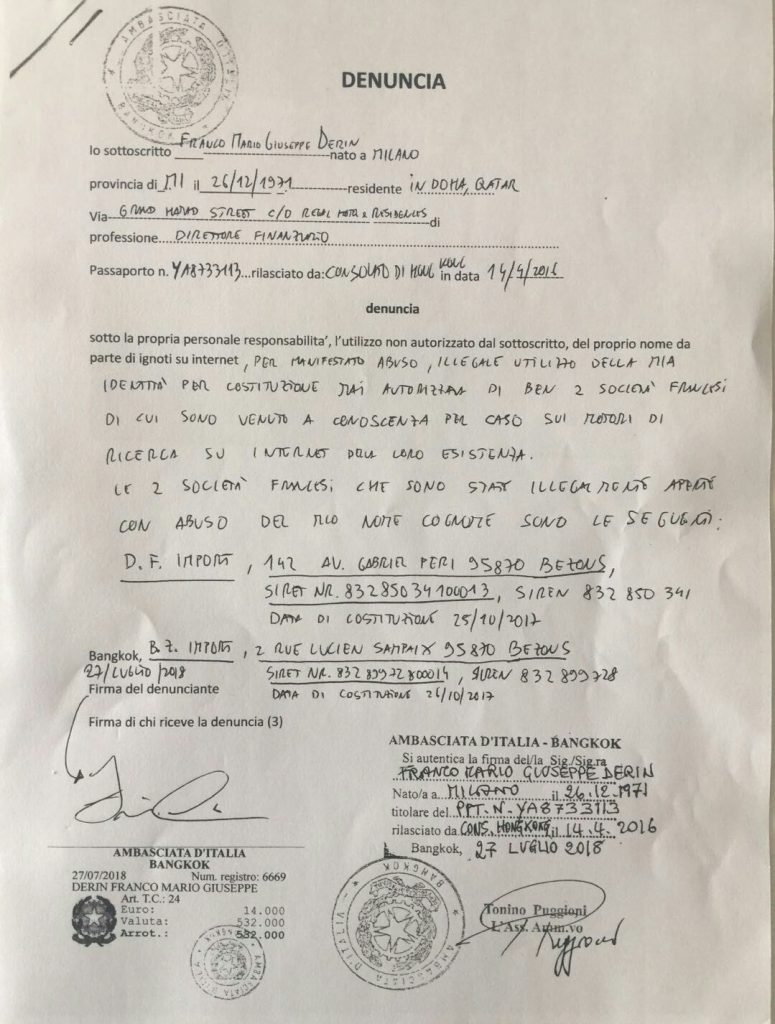 AMBASCIATA D'ITALIA
BANGKOK
DENUNCIA
Io sottoscritto FRANCO MARIO GIUSEPPE DERIN nato a MILANO
provincia di MI il 26/12/1971 residente IN DOHA, QATAR
Via GRAND HAMAD STREET C/O REGAL HOTEL RESIDENCES di
professione DIRETTORE FINANZIARIO
Passaporto n. YA8733113 rilasciato da: CONSOLATO DI HONG KONG in data 14/4/2016
denuncia
sotto la propria personale responsabilita', l'utilizzo non autorizzato dal sottoscritto, del proprio nome da
parte di ignoti su internet, PER MANIFESTATO ABUSO, ILLEGALE UTILIZZO DELLA MIA
IDENTITÀ PER COSTITUZIONE MAI AUTORIZZATA DI BEN 2 SOCIETÀ FRANCESI
DI CUI SONO VENUTO A CONOSCENZA PER CASO SUI MOTORI DI
RICERCA SU INTERNET DELLA LORO ESISTENZA.
LE 2 SOCIETÀ FRANCESI CHE SONO STATE ILLEGALMENTE APERTE
CON ABUSO DEL MIO NOME COGNOME SONO LE SEGUENTI:
D.F. IMPORT, 142 AV. GABRIEL PERI 95870 BEZONS,
SIRET NR. 83285034100013, SIREN 832 850 341
DATA DI COSTITUZIONE 25/10/2017
Bangkok, B.Z. IMPORT, 2 RUE LUCIEN SAMPAIX 95870 BEZONS
27/LUGLIO/2018 SIRET NR. 83289972800014, SIREN 832899728
Firma del denunciante DATA DI COSTITUZIONE 26/10/2017
Firma di chi riceve la denuncia (3)
AMBASCIATA D'ITALIA - BANGKOK
Si autentica la firma del/la Sig./Sig.ra
FRANCO MARIO GIUSEPPE DERIN
Nato/a a MILANO il 26.12.1971
titolare del PPT.N.YA8733113
rilasciato da CONS. HONGKONG il 14.4.2016
Bangkok, 27 LUGLIO 2018
Tonino Puggioni
L'Ass. Amm.vo
AMBASCIATA D'ITALIA
BANGKOK
27/07/2018 Num. registro: 6669
DERIN FRANCO MARIO GIUSEPPE
Art. T.C.: 24
Euro: 14.000
Valuta: 532.000
Arrot.: 532.000
AMBASCIATA D'ITALIA
BANGKOK
AMBASCIATA D'ITALIA
BANGKOK